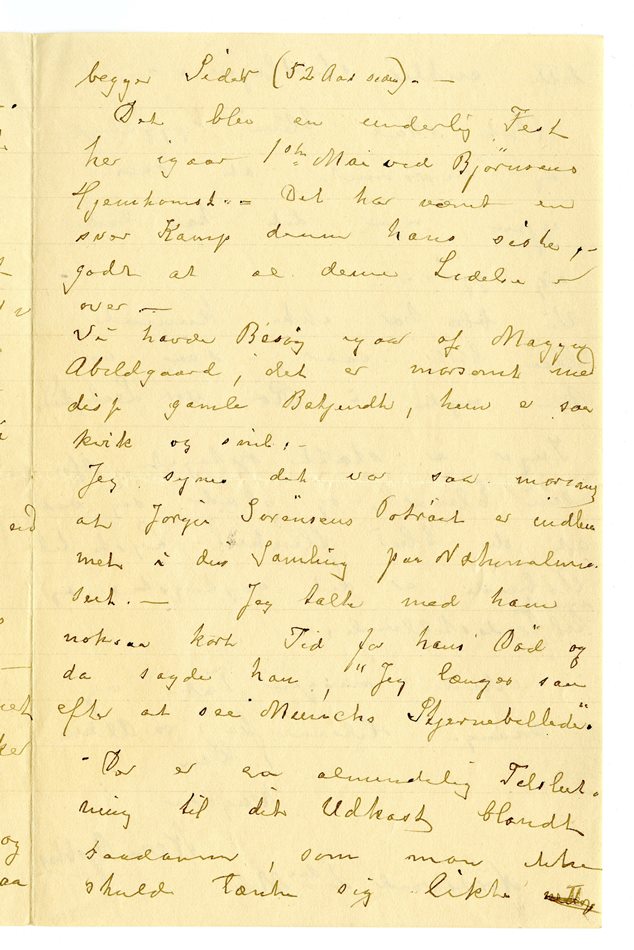 begger Sider (52 Aar siden). —
Det blev en underlig Fest
her igaar 1ste Mai ved Bjørnsens
Hjemkomst. — Det har været en
svær Kamp denne hans siste, —
godt at al denne Lidelse er
over —
Vi havde Besøg igaar af Magga
Abildgaard, det er morsomt med
disse gamle Bekjendte, hun e saa
kvik og snil. —
Jeg synes det var saa morsomt
at Jørgen Sørensens Potræt er indlem
met i dus Samling paa Nationalmu
seet. — Jeg talte med ham
noksaa kort Tid før hans Død og
da sagde han, "Jeg længes saa
efter at see Munchs Stjernebillede".
Der er en almindelig Tilslut-
ning til dit Udkast blandt
saadanne, som man ikke
skulde tænke sig likte
ed
og
aa